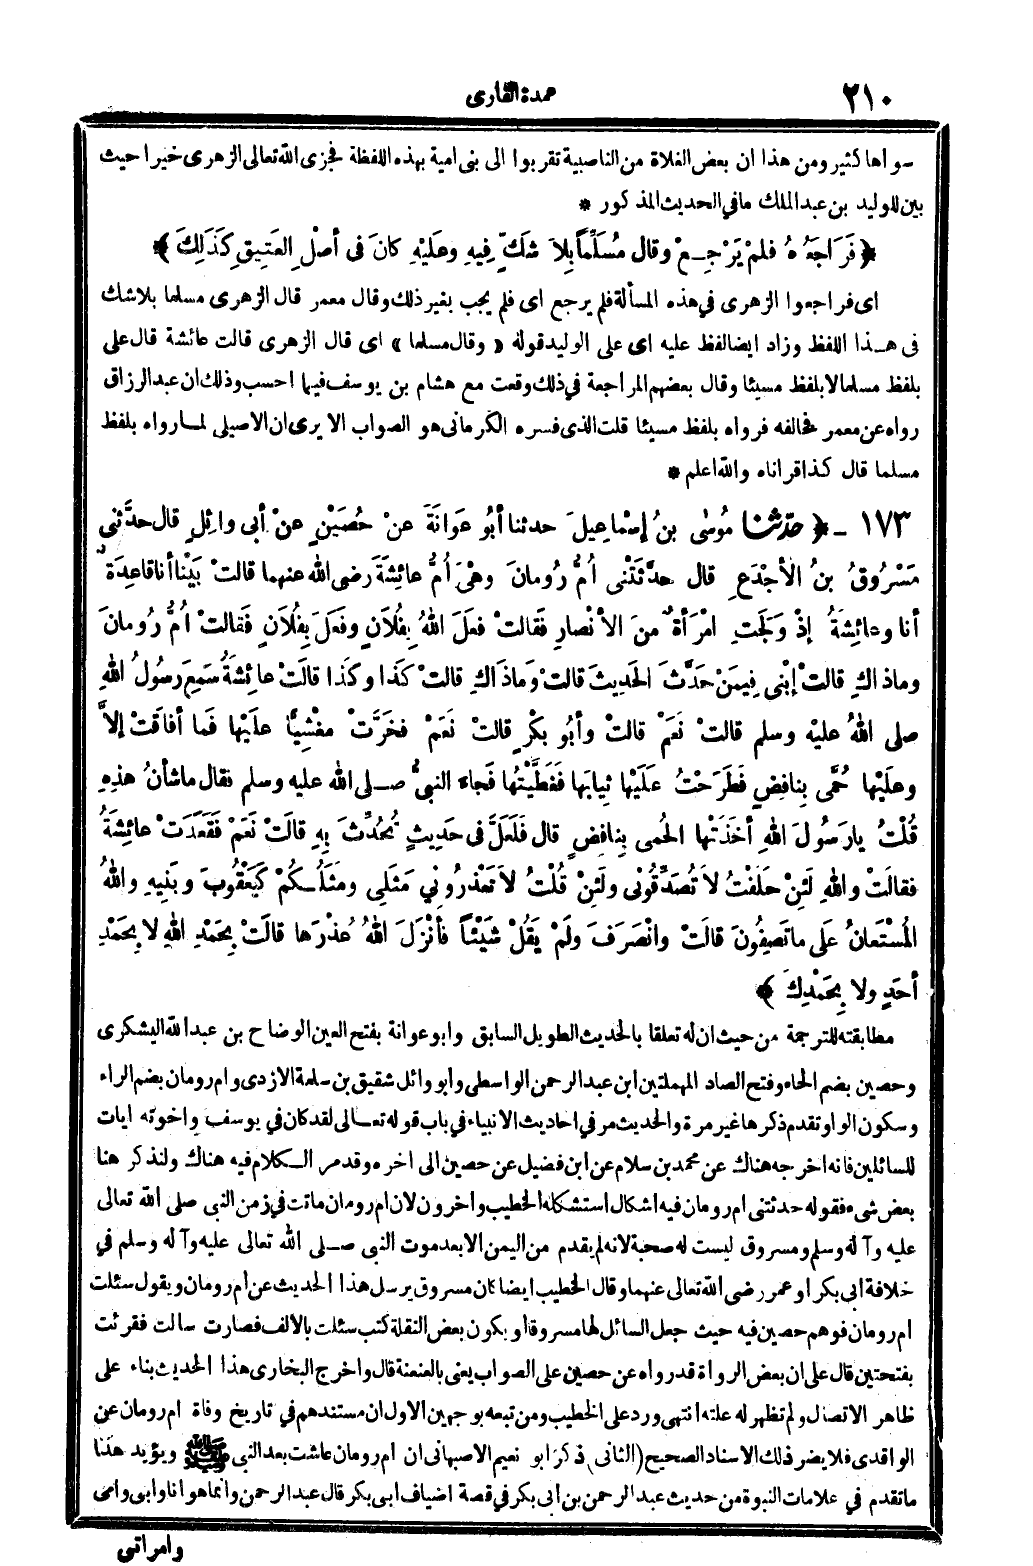 ٢١٠
عمدة القارى
سواها كثير ومن هذا ان بعض الغلاة من الناصبية تقربوا الى بنى امية بهذه اللفظة فجزى الله تعالى الزهرى خيرا حيث
بين للوليد بن عبدالملك ما في الحديث المذكور *
﴿ فَرَاجَعُوهُ فلمْ يَرْجِـعْ وقال مُسَلِّماً بِلاَ شَكّ فِيهِ وعَلَيْهِ كانَ فى أصْلِ العَتِيقِ كَذَلِكَ ﴾
اى فراجعوا الزهرى في هذه المسألة فلم يرجع اى فلم يجب بغير ذلك وقال معمر قال الزهرى مسلما بلاشك
فى هـذا اللفظ وزاد ايضا لفظ عليه اى على الوليد قوله « وقال مسلما » اى قال الزهرى قالت عائشة قال على
بلفظ مسلما لا بلفظ مسيئا وقال بعضهم المراجعة في ذلك وقعت مع هشام بن يوسف فيما احسب وذلك ان عبد الرزاق
رواه عن معمر فخالفه فرواه بلفظ مسيئا قلت الذى فسره الكرمانى هو الصواب الا يرى ان الاصيلى لمـا رواه بلفظ
مسلما قال كذا قراناه والله اعلم *
١٧٣ - ﴿ حَدَّثَنَا مُوسٰى بنُ إسْماعِيلَ حدثنا أبُو عَوَانَةَ عنْ حُصَيْنٍ عنْ أبى وائِلٍ قال حدَّثنى
مَسْرُوقُ بنُ الأجْدَعِ قال حدَّثَتْنى أُمُّ رُومانَ وهْىَ أُمُّ عائِشَةَ رضى الله عنهما قالتْ بَيْنا أنا قاعِدَةٌ
أنا وعائِشَةُ إذْ وَلَجَتِ امْرَأةٌ منَ الأنْصارِ فَقالتْ فَعلَ اللهُ بِفُلَانٍ وفَعَلَ بِفُلَانٍ فَقالتْ أُمُّ رُومانَ
وماذاكِ قالتْ إبْنى فِيمَنْ حَدَّثَ الحَدِيثَ قالتْ وَماذَاكِ قالتْ كَذَا وكَذَا قالَتْ عائِشَةُ سَمِعَ رسُولُ اللهِ
صلى اللهُ عليْه وسلم قالتْ نَعَمْ قالتْ وأبُو بكْرٍ قالتْ نَعَمْ فخَرَّتْ مغْشِيًّا علَيْها فَما أفاقَتْ إلاَّ
وعلَيْها حُمَّى بِنافِضٍ فَطَرَحْتُ عَلَيْها ثِيابَها فَغَطَّيْتُها فَجاءَ النبىُّ صـلى الله عليه وسلم فقال ماشأنُ هذِهِ
قُلْتُ يارَسُولَ اللهِ أخَذَتْها الحُمى بِنافِضٍ قال فَلَعَلَّ فى حَدِيثٍ تُحُدِّثَ بِهِ قالَتْ نَعَمْ فَقَعَدَتْ عائِشَةُ
فقالَتْ واللهِ لَئِنْ حلَفْتُ لاَ تُصَدِّقُونى ولَئِنْ قُلْتُ لاَ تَعْذرُوني مَثَلِى ومثَلُـكُمْ كَيَعْقُوبَ وبَنِيهِ واللهُ
المُسْتَعانُ عَلَى ما تَصِفُونَ قالَتْ وانْصَرَفَ ولَمْ يَقُلْ شَيْئاً فأنْزَلَ اللهُ عُذْرَها قالَتْ بِحَمْدِ اللهِ لا بِحَمْدِ
أحَدٍ ولا بِحَمْدِكَ ﴾
مطابقته للترجمة من حيث ان له تعلقا بالحديث الطويل السابق وابو عوانة بفتح العين الوضاح بن عبد الله اليشكرى
وحصين بضم الحاء وفتح الصاد المهملتين ابن عبد الرحمن الواسطى وابو وائل شقيق بن سلمة الازدى وام رومان بضم الراء
وسكون الواو تقدم ذكرها غير مرة والحديث مر في احاديث الانبياء في باب قوله تعـالى لقد كان في يوسف واخوته ايات
للسائلين فانه اخرجه هناك عن محمد بن سلام عن ابن فضيل عن حصين الى اخره وقد مر الـكلام فيه هناك ولنذكر هنا
بعض شىء فقوله حدثتنى ام رومان فيه اشكال استشكله الخطيب واخرون لان ام رومان ماتت في زمن النبى صلى الله تعالى
عليه وآله وسلم ومسروق ليست له صحبة لانه لم يقدم من اليمن الا بعد موت النبى صـلى الله تعالى عليه وآله وسلم في
خلافة ابى بكر او عمر رضى الله تعالى عنهما وقال الخطيب ايضا كان مسروق يرسل هذا الحديث عن ام رومان ويقول سئلت
ام رومان فوهم حصين فيه حيث جعل السائل لها مسروقا او يكون بعض النقلة كتب سئلت بالالف فصارت سالت فقرئت
بفتحتين قال على ان بعض الرواة قد رواه عن حصين على الصواب يعنى بالعنعنة قال واخرج البخارى هذا الحديث بناء على
ظاهر الاتصال ولم تظهر له علته انتهى ورد على الخطيب ومن تبعه بوجهين الاول ان مستندهم في تاريخ وفاة ام رومان عن
الواقدى فلا يضر ذلك الاسناد الصحيح (الثانى) ذكر ابو نعيم الاصبهانى ان ام رومان عاشت بعد النبى ﷺ ويؤيد هذا
ما تقدم في علامات النبوة من حديث عبد الرحمن بن ابى بكر في قصة اضياف ابى بكر قال عبد الرحمن وانما هو انا وابى وامى
وامراتى